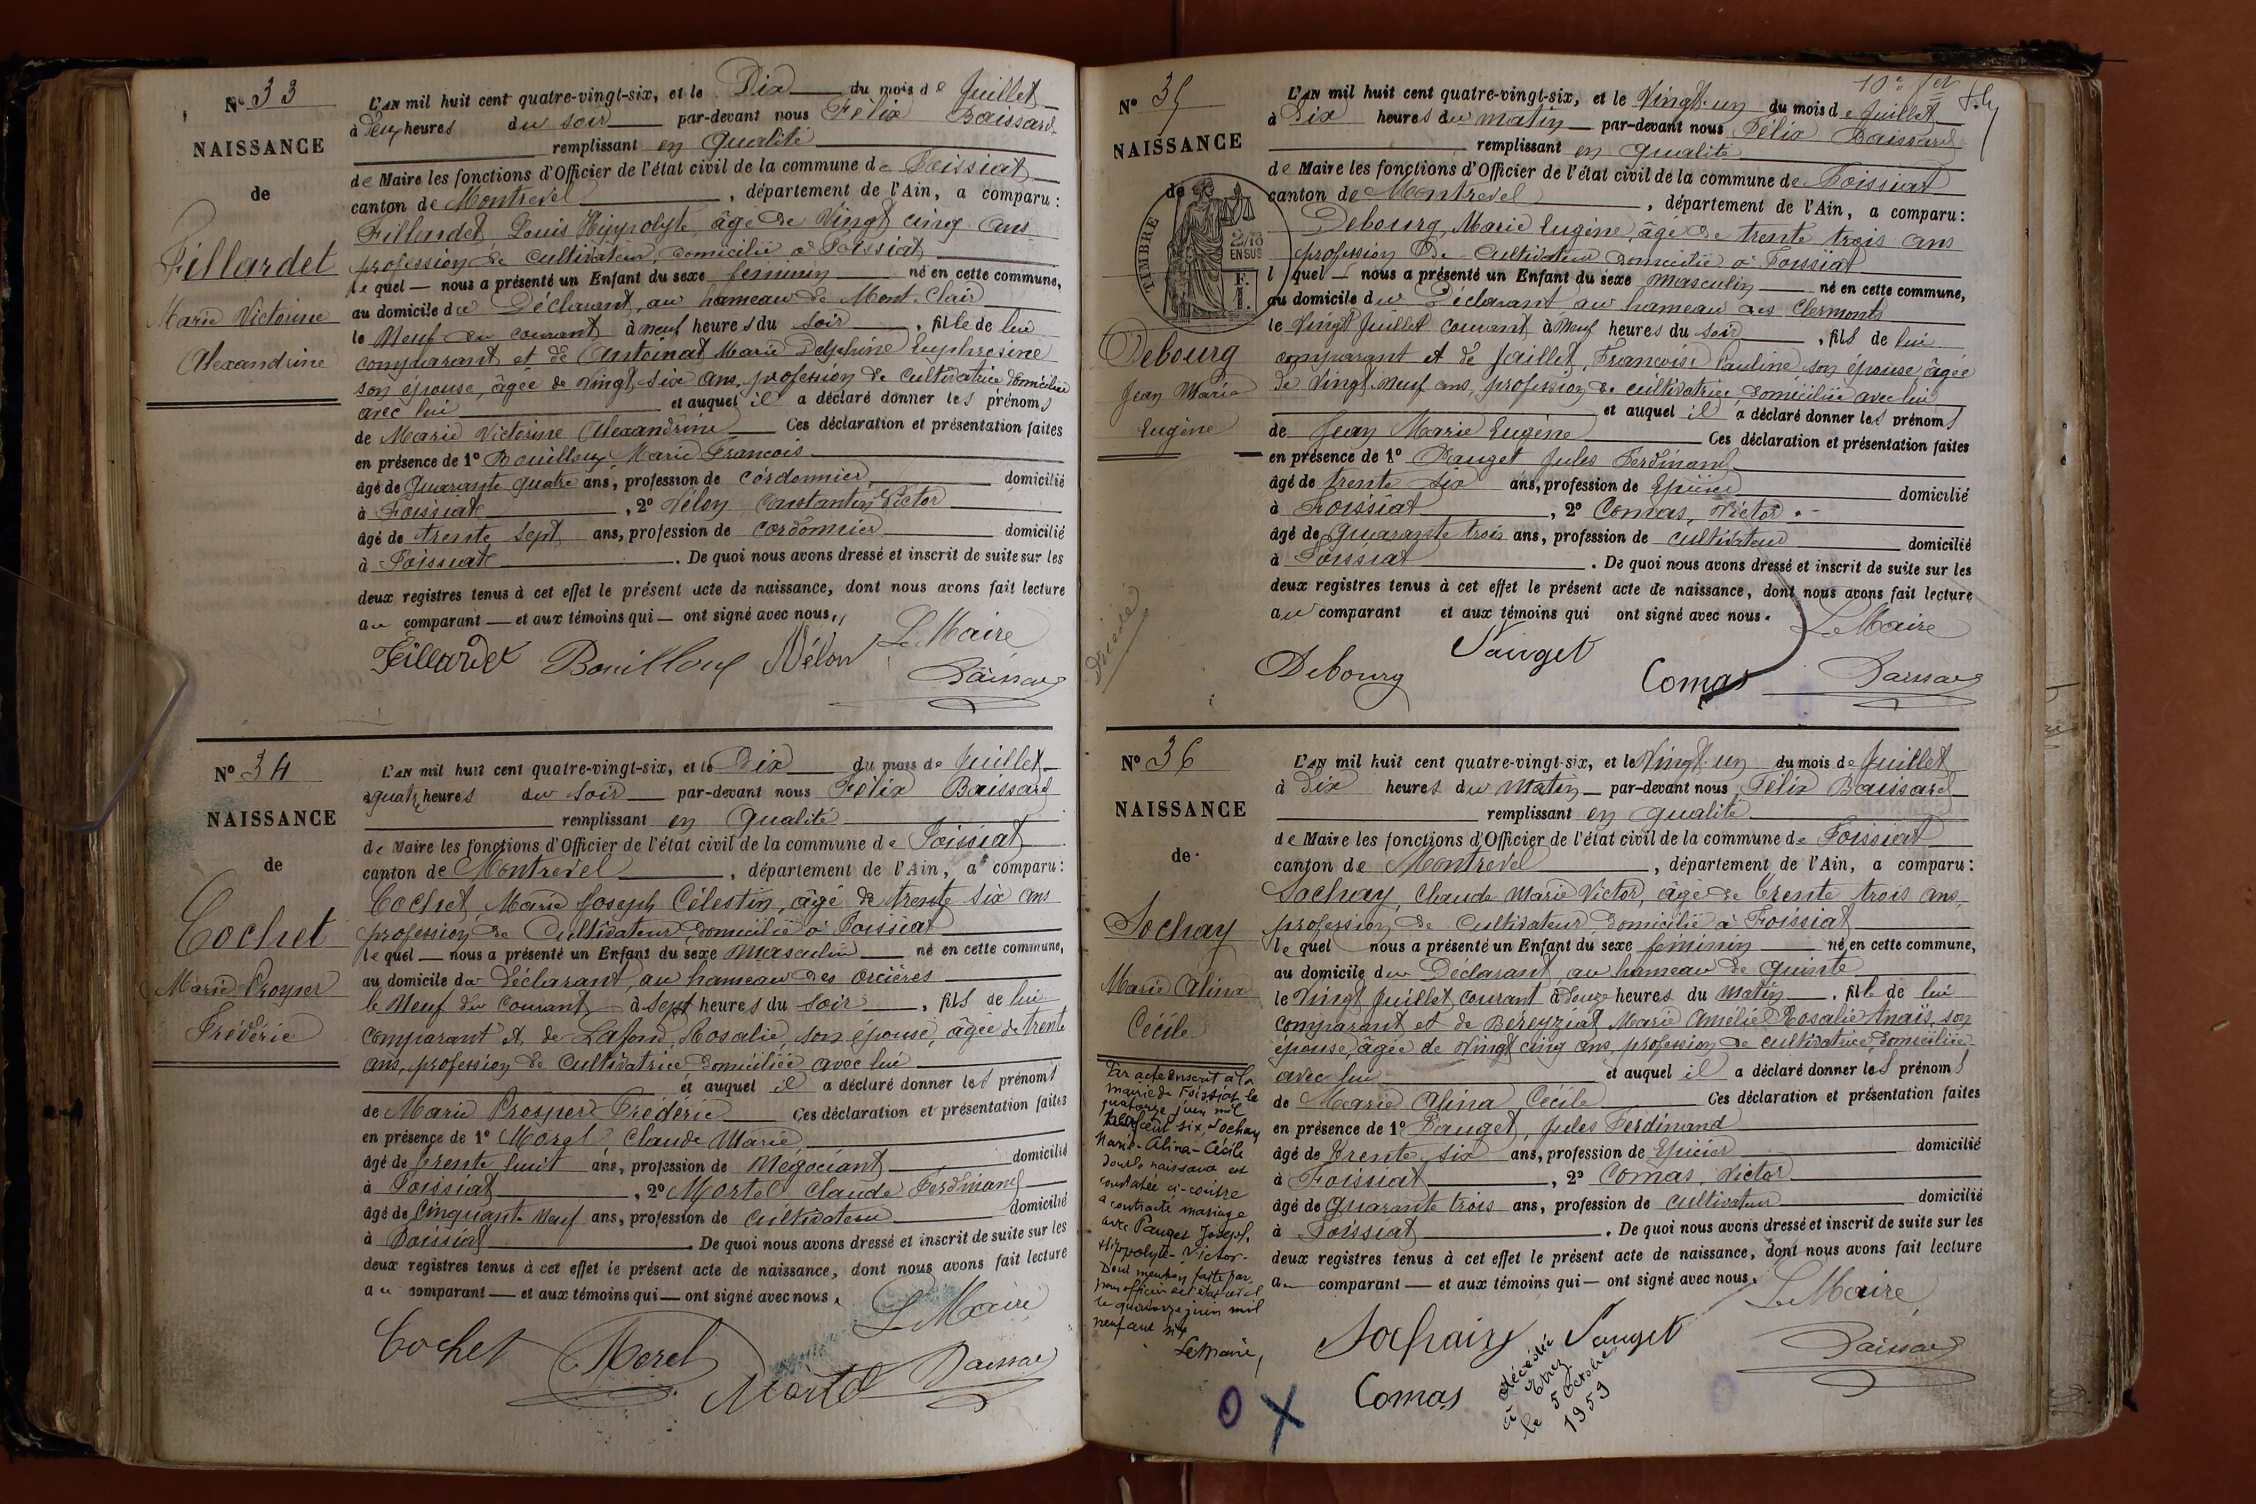 Nº 33
NAISSANCE
de
Fillardet
Marie Victorine
Alexandrine
L'AN mil huit cent quatre-vingt-six, et le Dix du mois de Juillet
à Deux heures du soir par-devant nous Félix Baissard
remplissant en qualité
de Maire les fonctions d'Officier de l'état civil de la commune de Foissiat
canton de Montrevel, département de l'Ain, a comparu:
Fillardet Louis Hyppolyte âgé de Vingt cinq ans
profession de cultivateur, domicilié à Foissiat
le quel nous a présenté un Enfant du sexe féminin né en cette commune,
au domicile du Déclarant, au hameau de Mont-Clair
le Neuf du courant à neuf heures du soir, fille de lui
comparant et de Antoinat Marie Delphine Euphrosine
son épouse, âgée de Vingt six ans, profession de cultivatrice domiciliée
avec lui et auquel il a déclaré donner les prénoms
de Marie Victorine Alexandrine Ces déclaration et présentation faites
en présence de 1º Bouilloux Marie François
âgé de Quarante quatre ans, profession de cordonnier, domicilié
à Foissiat, 2º Vélon Constantin Victor
âgé de trente sept ans, profession de cordonnier domicilié
à Foissiat. De quoi nous avons dressé et inscrit de suite sur les
deux registres tenus à cet effet le présent acte de naissance, dont nous avons fait lecture
au comparant et aux témoins qui ont signé avec nous.
Le Maire
Fillardet Bouilloux Vélon
Baissard
Nº 34
NAISSANCE
de
Cochet
Marie Prosper
Frédéric
L'AN mil huit cent quatre-vingt-six, et le Dix du mois de Juillet
à quatre heures du soir par-devant nous Félix Baissard
remplissant en Qualité
de Maire les fonctions d'Officier de l'état civil de la commune de Foissiat
canton de Montrevel, département de l'Ain, a comparu:
Cochet, Marie Joseph Célestin, âgé de trente six ans
profession de Cultivateur, domicilié à Foissiat
le quel nous a présenté un Enfant du sexe Masculin né en cette commune,
au domicile du déclarant, au hameau des orcières
le Neuf du Courant à sept heures du soir, fils de lui
comparant et de Lafond Rosalie, son épouse, âgée de trente
ans, profession de Cultivatrice, domiciliée avec lui
et auquel il a déclaré donner les prénoms
de Marie Prosper Frédéric Ces déclaration et présentation faites
en présence de 1º Morel Claude Marie
âgé de trente huit ans, profession de Négociant domicilié
à Foissiat, 2º Mortel Claude Ferdinand
âgé de Cinquante Neuf ans, profession de Cultivateur domicilié
à Foissiat. De quoi nous avons dressé et inscrit de suite sur les
deux registres tenus à cet effet le présent acte de naissance, dont nous avons fait lecture
au comparant et aux témoins qui ont signé avec nous.
Le Maire
Cochet Morel Mortel Baissard
Nº 35
NAISSANCE
de
TIMBRE
2/10
EN SUS
Debourg
Jean Marie
Eugène
L'AN mil huit cent quatre-vingt-six, et le Vingt-un du mois de Juillet
à Dix heures du matin par-devant nous Félix Baissard
remplissant en qualité
de Maire les fonctions d'Officier de l'état civil de la commune de Foissiat
canton de Montrevel, département de l'Ain, a comparu:
Debourg, Marie Eugène, âgé de trente trois ans
profession de Cultivateur domicilié à Foissiat
l quel nous a présenté un Enfant du sexe masculin né en cette commune,
au domicile du Déclarant au hameau des Clermonts
le Vingt Juillet courant à Neuf heures du soir, fils de lui
comparant et de Jaillet, Françoise Pauline son épouse âgée
de Vingt-neuf ans, profession de cultivatrice, domiciliée avec lui
et auquel il a déclaré donner les prénoms
de Jean Marie Eugène Ces déclaration et présentation faites
en présence de 1º Pauget Jules Ferdinand
âgé de trente six ans, profession de Epicier domicilié
à Foissiat, 2º Comas, Victor
âgé de Quarante trois ans, profession de cultivateur domicilié
à Foissiat. De quoi nous avons dressé et inscrit de suite sur les
deux registres tenus à cet effet le présent acte de naissance, dont nous avons fait lecture
au comparant et aux témoins qui ont signé avec nous.
Le Maire
Debourg Pauget Comas Baissard
Nº 36
NAISSANCE
de
Sochay
Marie Alina
Cécile
Par acte inscrit à la
mairie de Foissiat le
quatorze juin mil
neuf cent six, Sochay
Marie-Alina-Cécile
dont la naissance est
constatée ci-contre
a contracté mariage
avec Pauget Joseph
Hippolyte-Victor.
Dont mention faite par
nous officier de l'état civil
le quatorze juin mil
neuf cent six
Le Maire,
L'AN mil huit cent quatre-vingt-six, et le Vingt-un du mois de Juillet
à Dix heures du Matin par-devant nous Félix Baissard
remplissant en qualité
de Maire les fonctions d'Officier de l'état civil de la commune de Foissiat
canton de Montrevel, département de l'Ain, a comparu:
Sochay, Claude Marie Victor, âgé de trente trois ans,
profession de Cultivateur domicilié à Foissiat
le quel nous a présenté un Enfant du sexe féminin né en cette commune,
au domicile du Déclarant, au hameau de Quinte
le Vingt Juillet courant à Douze heures du matin, fille de lui
comparant et de Béreyziat Marie Amélie Rosalie Anaïs, son
épouse, âgée de Vingt cinq ans, profession de cultivatrice, domiciliée
avec lui et auquel il a déclaré donner les prénoms
de Marie Alina Cécile Ces déclaration et présentation faites
en présence de 1º Pauget, Jules Ferdinand
âgé de Trente six ans, profession de Epicier domicilié
à Foissiat, 2º Comas, Victor
âgé de Quarante trois ans, profession de cultivateur domicilié
à Foissiat. De quoi nous avons dressé et inscrit de suite sur les
deux registres tenus à cet effet le présent acte de naissance, dont nous avons fait lecture
au comparant et aux témoins qui ont signé avec nous.
Le Maire,
Sochay Pauget
Comas Baissard
décédée
à Etrez
le 5 Octobre
1959